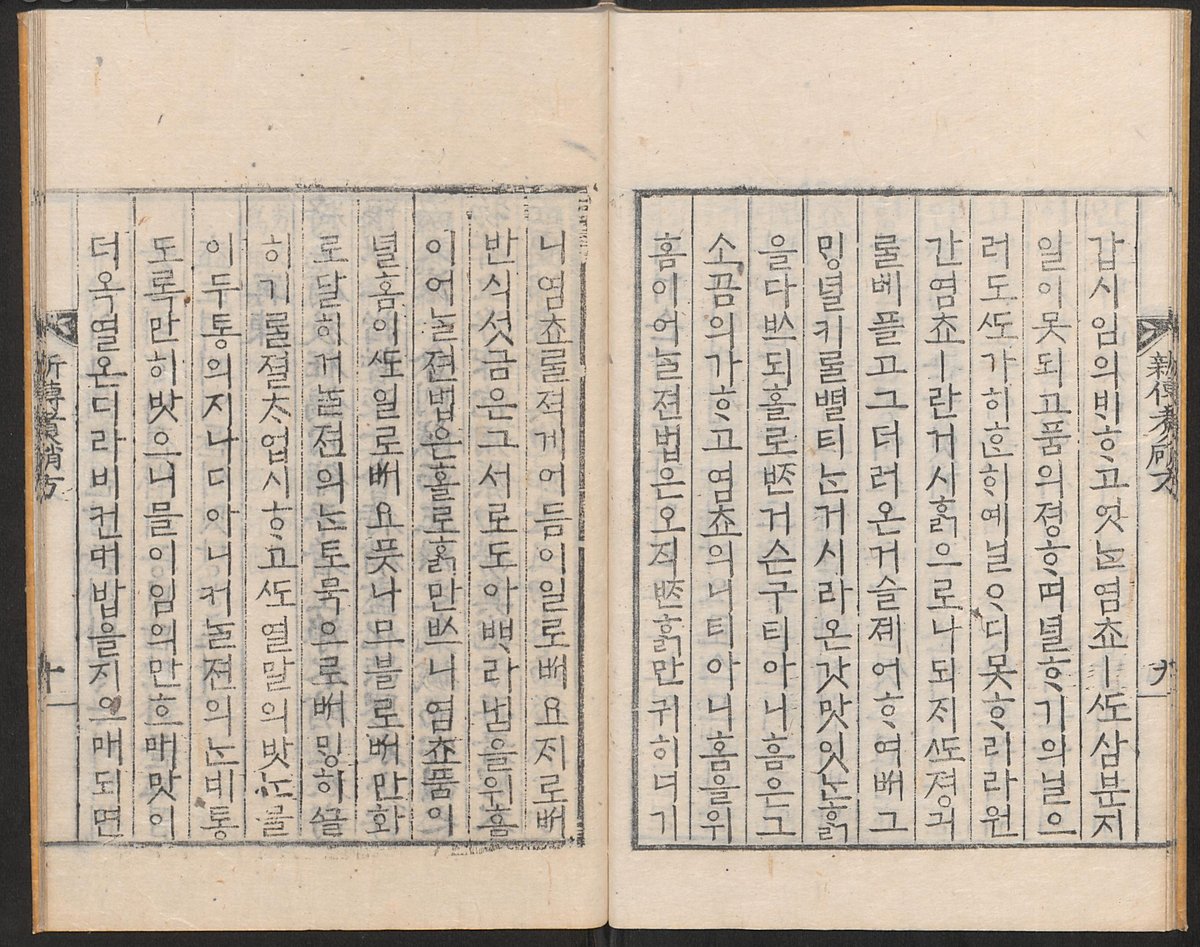 新傳煮硝方
九
갑시임의비ᄒᆞ고엇ᄂᆞᆫ염쵸ㅣᄯᅩ삼분지
일이못되고품의졍ᄒᆞ며녈ᄒᆞ기의닐으
러도ᄯᅩ가히ᄒᆞᆫᄒᆡ예닐ᄋᆞ디못ᄒᆞ리라원
간염쵸ㅣ란거시흙으로나되지ᄯᅩ졍긔
ᄅᆞᆯ베플고그더러온거슬졔어ᄒᆞ여ᄡᅥ그
밍녈키ᄅᆞᆯ별티ᄂᆞᆫ거시라온갓맛잇ᄂᆞᆫ흙
을다ᄡᅳ되홀로ᄧᆞᆫ거슨구티아니흠은그
소곰의가ᄒᆞ고염쵸의니티아니홈을위
홈이어ᄂᆞᆯ젼법은오직ᄧᆞᆫ흙만귀히녀기
니염쵸ᄅᆞᆯ적게어듬이일로ᄡᅥ요지로ᄡᅥ
반식섯금은그서로도아라번을위홈
이어ᄂᆞᆯ젼법은홀로흙만ᄡᅳ니염쵸품이
녈홈이ᄯᅩ일로ᄡᅥ요풋나모블로ᄡᅥ만화
로달히거ᄂᆞᆯ젼의ᄂᆞᆫ토목으로ᄡᅥ밍히ᄭᅳᆯ
히기ᄅᆞᆯ졀ᄎᆞ업시ᄒᆞ고ᄯᅩ열말의밧ᄂᆞᆫ믈
이두통의지나디아니커ᄂᆞᆯ젼의ᄂᆞᆫ네통
도록만히밧으니믈이임의만흐매맛이
더옥열온디라비컨대밥을지으매되면
新傳煮硝方
十